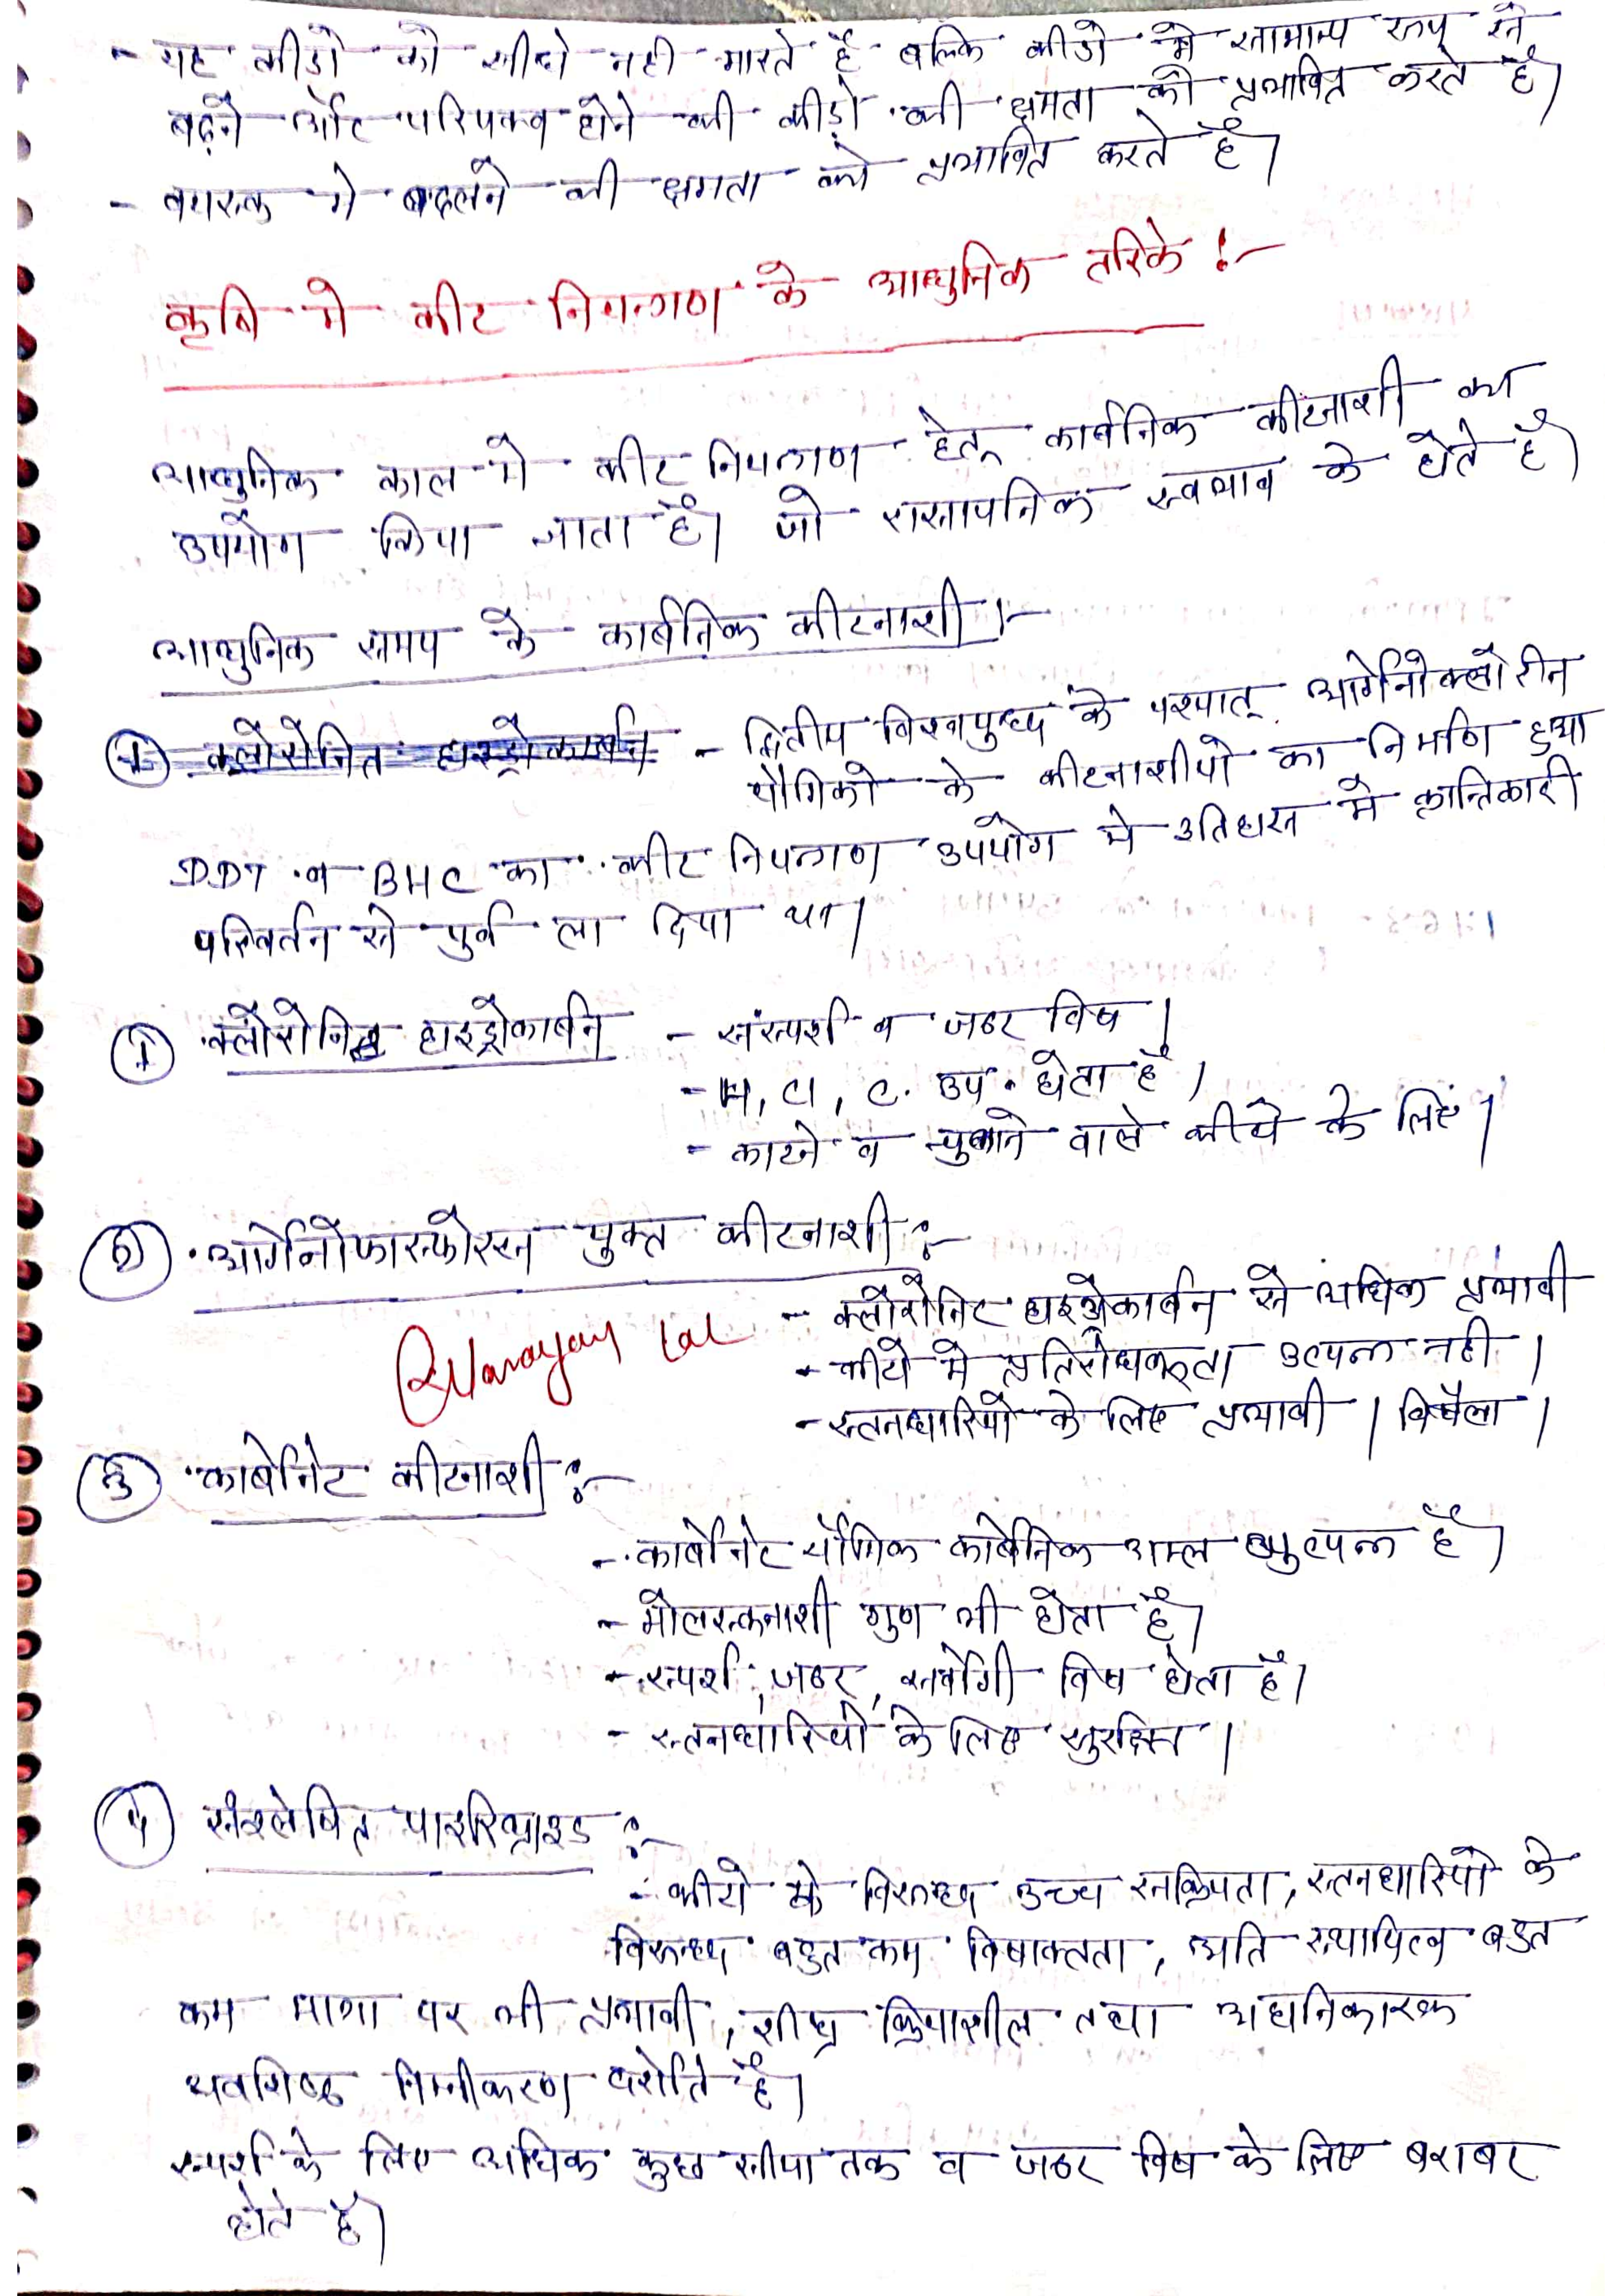 - यह कीडो को सीधे नही मारते है बल्कि कीडो मे सामान्य रूप से
बढ़ने और परिपक्व होने की कीड़ो की क्षमता को प्रभावित करते है।
- वयस्क मे बदलने की क्षमता को प्रभावित करते है।
कृषि मे कीट नियन्त्रण के आधुनिक तरिके :-
आधुनिक काल मे कीट नियन्त्रण हेतू कार्बनिक कीटनाशी का
उपयोग किया जाता है। जो रासायनिक स्वभाव के होते है।
आधुनिक समय के कार्बनिक कीटनाशी :-
① क्लोरोनित हाइड्रोकार्बन - द्वितीय विश्वयुध्द के पश्चात् आर्गेनोक्लोरीन
यौगिको के कीटनाशीयो का निर्माण हुआ
DDT व BHC का कीट नियन्त्रण उपयोग मे इतिहास मे क्रान्तिकारी
परिवर्तन से पुर्व ला दिया था।
① क्लोरोनित हाइड्रोकार्बन - संस्पर्श व जठर विष।
- H, Cl, C. उप. होता है।
- काटने व चुभाने वाले कीटो के लिए।
② आर्गेनोफास्फोरस युक्त कीटनाशी :-
- क्लोरोनिट हाइड्रोकार्बन से अधिक प्रभावी
Narayan Lal - कीटो मे प्रतिरोधकता उत्पन्न नही।
- स्तनधारियो के लिए प्रभावी। विषैला।
③ कार्बोनेट कीटनाशी :-
- कार्बोनेट यौगिक कार्बोनिक अम्ल व्युत्पन्न है।
- मोलस्कनाशी गुण भी होता है।
- स्पर्श, जठर, सर्वांगी विष होता है।
- स्तनधारियो के लिए सुरक्षित।
④ संश्लेषित पाइरिथ्राइड :-
- कीटो के विरूध्द उच्च सक्रियता, स्तनधारियो के
विरूध्द बहुत कम विषाक्तता, अति स्थायित्व बहुत
कम मात्रा पर भी प्रभावी, शीघ्र क्रियाशील तथा अहानिकारक
अवशिष्ट निम्नीकरण दर्शाते है।
स्पर्श के लिए अधिक कुछ सीमा तक व जठर विष के लिए बराबर
होते है।